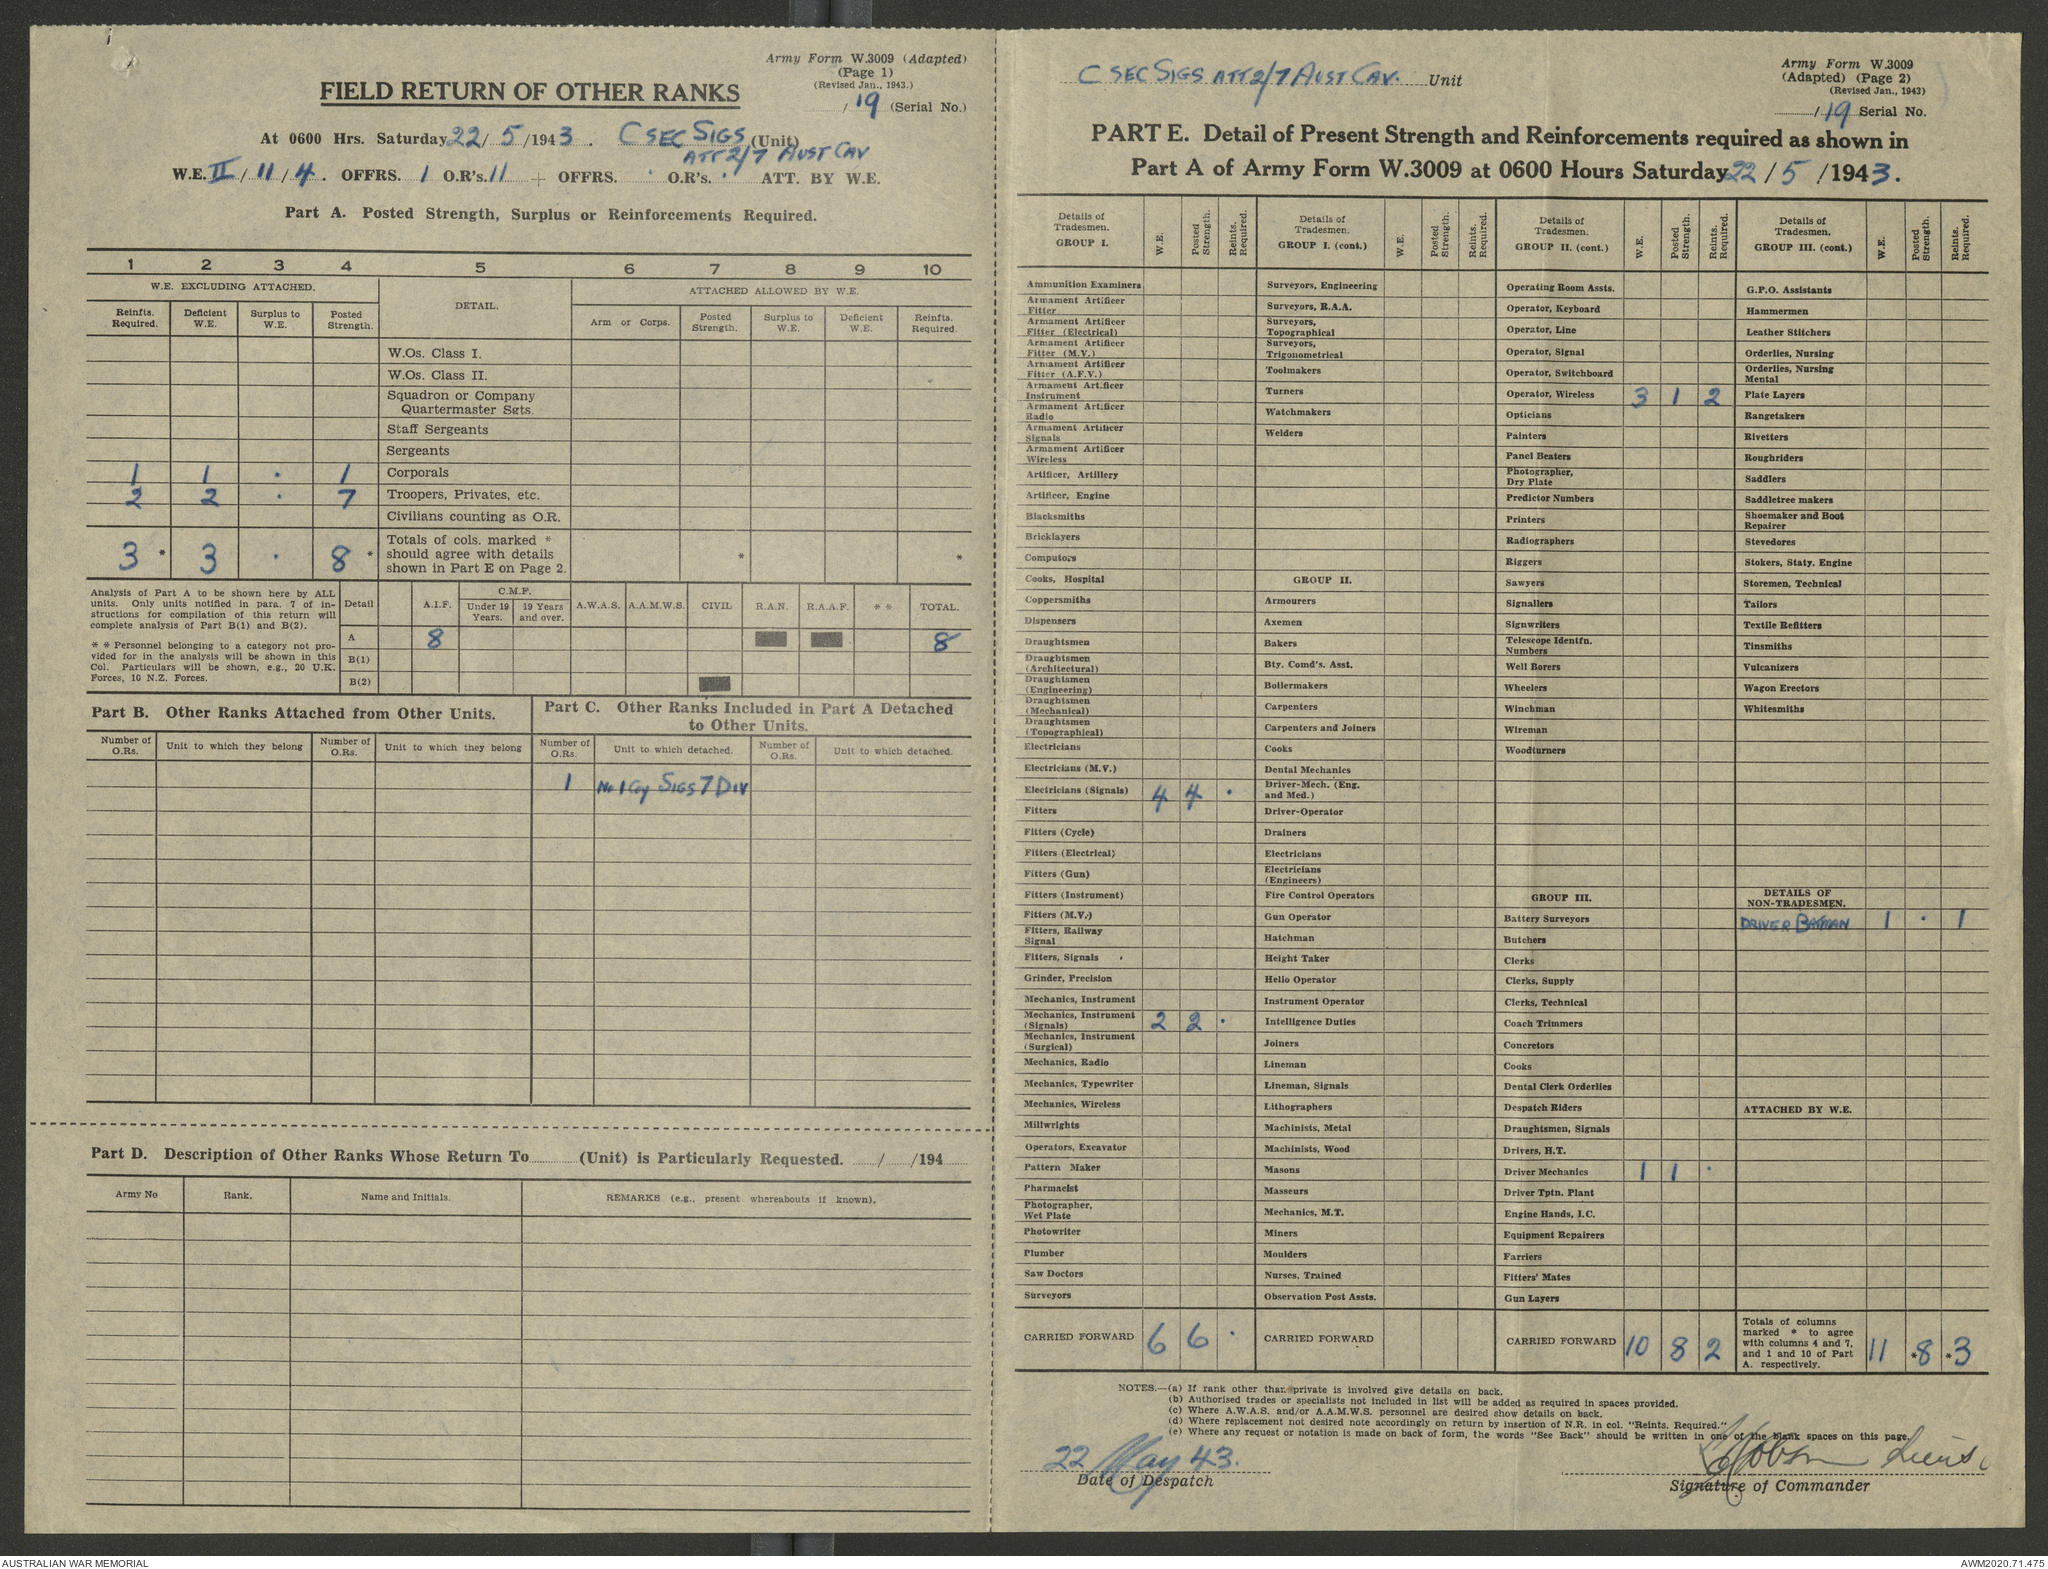 Army Form W.3009 (Adapted)
(Page 1)
(Revised Jan., 1943.)
/ 19 (Serial No.)
FIELD RETURN OF OTHER RANKS
At 0600 Hrs. Saturday 22/ 5 /1943 . C SEC SIGS (Unit)
ATT 2/7 AUST CAV
W.E. II / 11 / 4 . OFFRS. 1 O.R's. 11 + OFFRS. . O.R's. . ATT. BY W.E.
Part A. Posted Strength, Surplus or Reinforcements Required.
1 2 3 4 5 6 7 8 9 10
W.E. EXCLUDING ATTACHED. DETAIL. ATTACHED ALLOWED BY W.E.
Reinfts. Required. Deficient W.E. Surplus to W.E. Posted Strength. Arm or Corps. Posted Strength. Surplus to W.E. Deficient W.E. Reinfts. Required.
W.Os. Class I.
W.Os. Class II.
Squadron or Company
Quartermaster Sgts.
Staff Sergeants
Sergeants
1 1 . 1 Corporals
2 2 . 7 Troopers, Privates, etc.
Civilians counting as O.R.
3 * 3 . 8 * Totals of cols. marked *
should agree with details * *
shown in Part E on Page 2.
Analysis of Part A to be shown here by ALL
units. Only units notified in para. 7 of in-
structions for compilation of this return will
complete analysis of Part B(1) and B(2).
* * Personnel belonging to a category not pro-
vided for in the analysis will be shown in this
Col. Particulars will be shown, e.g., 20 U.K.
Forces, 10 N.Z. Forces.
Detail A.I.F. C.M.F. Under 19 Years. 19 Years and over. A.W.A.S. A.A.M.W.S. CIVIL R.A.N. R.A.A.F. * * TOTAL.
A 8 8
B(1)
B(2)
Part B. Other Ranks Attached from Other Units.
Number of O.Rs. Unit to which they belong Number of O.Rs. Unit to which they belong
Part C. Other Ranks Included in Part A Detached
to Other Units.
Number of O.Rs. Unit to which detached. Number of O.Rs. Unit to which detached.
1 No 1 Coy SIGS 7 DIV
Part D. Description of Other Ranks Whose Return To (Unit) is Particularly Requested. / /194
Army No Rank. Name and Initials. REMARKS (e.g., present whereabouts if known).
C SEC SIGS ATT 2/7 AUST CAV. Unit
Army Form W.3009
(Adapted) (Page 2)
(Revised Jan., 1943)
/ 19 Serial No.
PART E. Detail of Present Strength and Reinforcements required as shown in
Part A of Army Form W.3009 at 0600 Hours Saturday 22 / 5 / 1943.
Details of Tradesmen. GROUP I. W.E. Posted Strength. Reints. Required.
Ammunition Examiners
Armament Artificer Fitter
Armament Artificer Fitter (Electrical)
Armament Artificer Fitter (M.V.)
Armament Artificer Fitter (A.F.V.)
Armament Artificer Instrument
Armament Artificer Radio
Armament Artificer Signals
Armament Artificer Wireless
Artificer, Artillery
Artificer, Engine
Blacksmiths
Bricklayers
Computors
Cooks, Hospital
Coppersmiths
Dispensers
Draughtsmen
Draughtsmen (Architectural)
Draughtsmen (Engineering)
Draughtsmen (Mechanical)
Draughtsmen (Topographical)
Electricians
Electricians (M.V.)
Electricians (Signals) 4 4 .
Fitters
Fitters (Cycle)
Fitters (Electrical)
Fitters (Gun)
Fitters (Instrument)
Fitters (M.V.)
Fitters, Railway Signal
Fitters, Signals
Grinder, Precision
Mechanics, Instrument
Mechanics, Instrument (Signals) 2 2 .
Mechanics, Instrument (Surgical)
Mechanics, Radio
Mechanics, Typewriter
Mechanics, Wireless
Millwrights
Operators, Excavator
Pattern Maker
Pharmacist
Photographer, Wet Plate
Photowriter
Plumber
Saw Doctors
Surveyors
CARRIED FORWARD 6 6 .
Details of Tradesmen. GROUP I. (cont.) W.E. Posted Strength. Reints. Required.
Surveyors, Engineering
Surveyors, R.A.A.
Surveyors, Topographical
Surveyors, Trigonometrical
Toolmakers
Turners
Watchmakers
Welders
GROUP II.
Armourers
Axemen
Bakers
Bty. Comd's. Asst.
Boilermakers
Carpenters
Carpenters and Joiners
Cooks
Dental Mechanics
Driver-Mech. (Eng. and Med.)
Driver-Operator
Drainers
Electricians
Electricians (Engineers)
Fire Control Operators
Gun Operator
Hatchman
Height Taker
Helio Operator
Instrument Operator
Intelligence Duties
Joiners
Lineman
Lineman, Signals
Lithographers
Machinists, Metal
Machinists, Wood
Masons
Masseurs
Mechanics, M.T.
Miners
Moulders
Nurses, Trained
Observation Post Assts.
CARRIED FORWARD
Details of Tradesmen. GROUP II. (cont.) W.E. Posted Strength. Reints. Required.
Operating Room Assts.
Operator, Keyboard
Operator, Line
Operator, Signal
Operator, Switchboard
Operator, Wireless 3 1 2
Opticians
Painters
Panel Beaters
Photographer, Dry Plate
Predictor Numbers
Printers
Radiographers
Riggers
Sawyers
Signallers
Signwriters
Telescope Identfn. Numbers
Well Borers
Wheelers
Winchman
Wireman
Woodturners
GROUP III.
Battery Surveyors
Butchers
Clerks
Clerks, Supply
Clerks, Technical
Coach Trimmers
Concretors
Cooks
Dental Clerk Orderlies
Despatch Riders
Draughtsmen, Signals
Drivers, H.T.
Driver Mechanics 1 1 .
Driver Tptn. Plant
Engine Hands, I.C.
Equipment Repairers
Farriers
Fitters' Mates
Gun Layers
CARRIED FORWARD 10 8 2
Details of Tradesmen. GROUP III. (cont.) W.E. Posted Strength. Reints. Required.
G.P.O. Assistants
Hammermen
Leather Stitchers
Orderlies, Nursing
Orderlies, Nursing Mental
Plate Layers
Rangetakers
Rivetters
Roughriders
Saddlers
Saddletree makers
Shoemaker and Boot Repairer
Stevedores
Stokers, Staty. Engine
Storemen, Technical
Tailors
Textile Refitters
Tinsmiths
Vulcanizers
Wagon Erectors
Whitesmiths
DETAILS OF NON-TRADESMEN.
DRIVER BATMAN 1 . 1
ATTACHED BY W.E.
Totals of columns marked * to agree with columns 4 and 7, and 1 and 10 of Part A. respectively. 11 *8 *3
NOTES.—(a) If rank other than private is involved give details on back.
(b) Authorised trades or specialists not included in list will be added as required in spaces provided.
(c) Where A.W.A.S. and/or A.A.M.W.S. personnel are desired show details on back.
(d) Where replacement not desired note accordingly on return by insertion of N.R. in col. "Reints. Required."
(e) Where any request or notation is made on back of form, the words "See Back" should be written in one of the blank spaces on this page.
22 May 43.
Date of Despatch
Signature of Commander
AUSTRALIAN WAR MEMORIAL
AWM2020.71.475